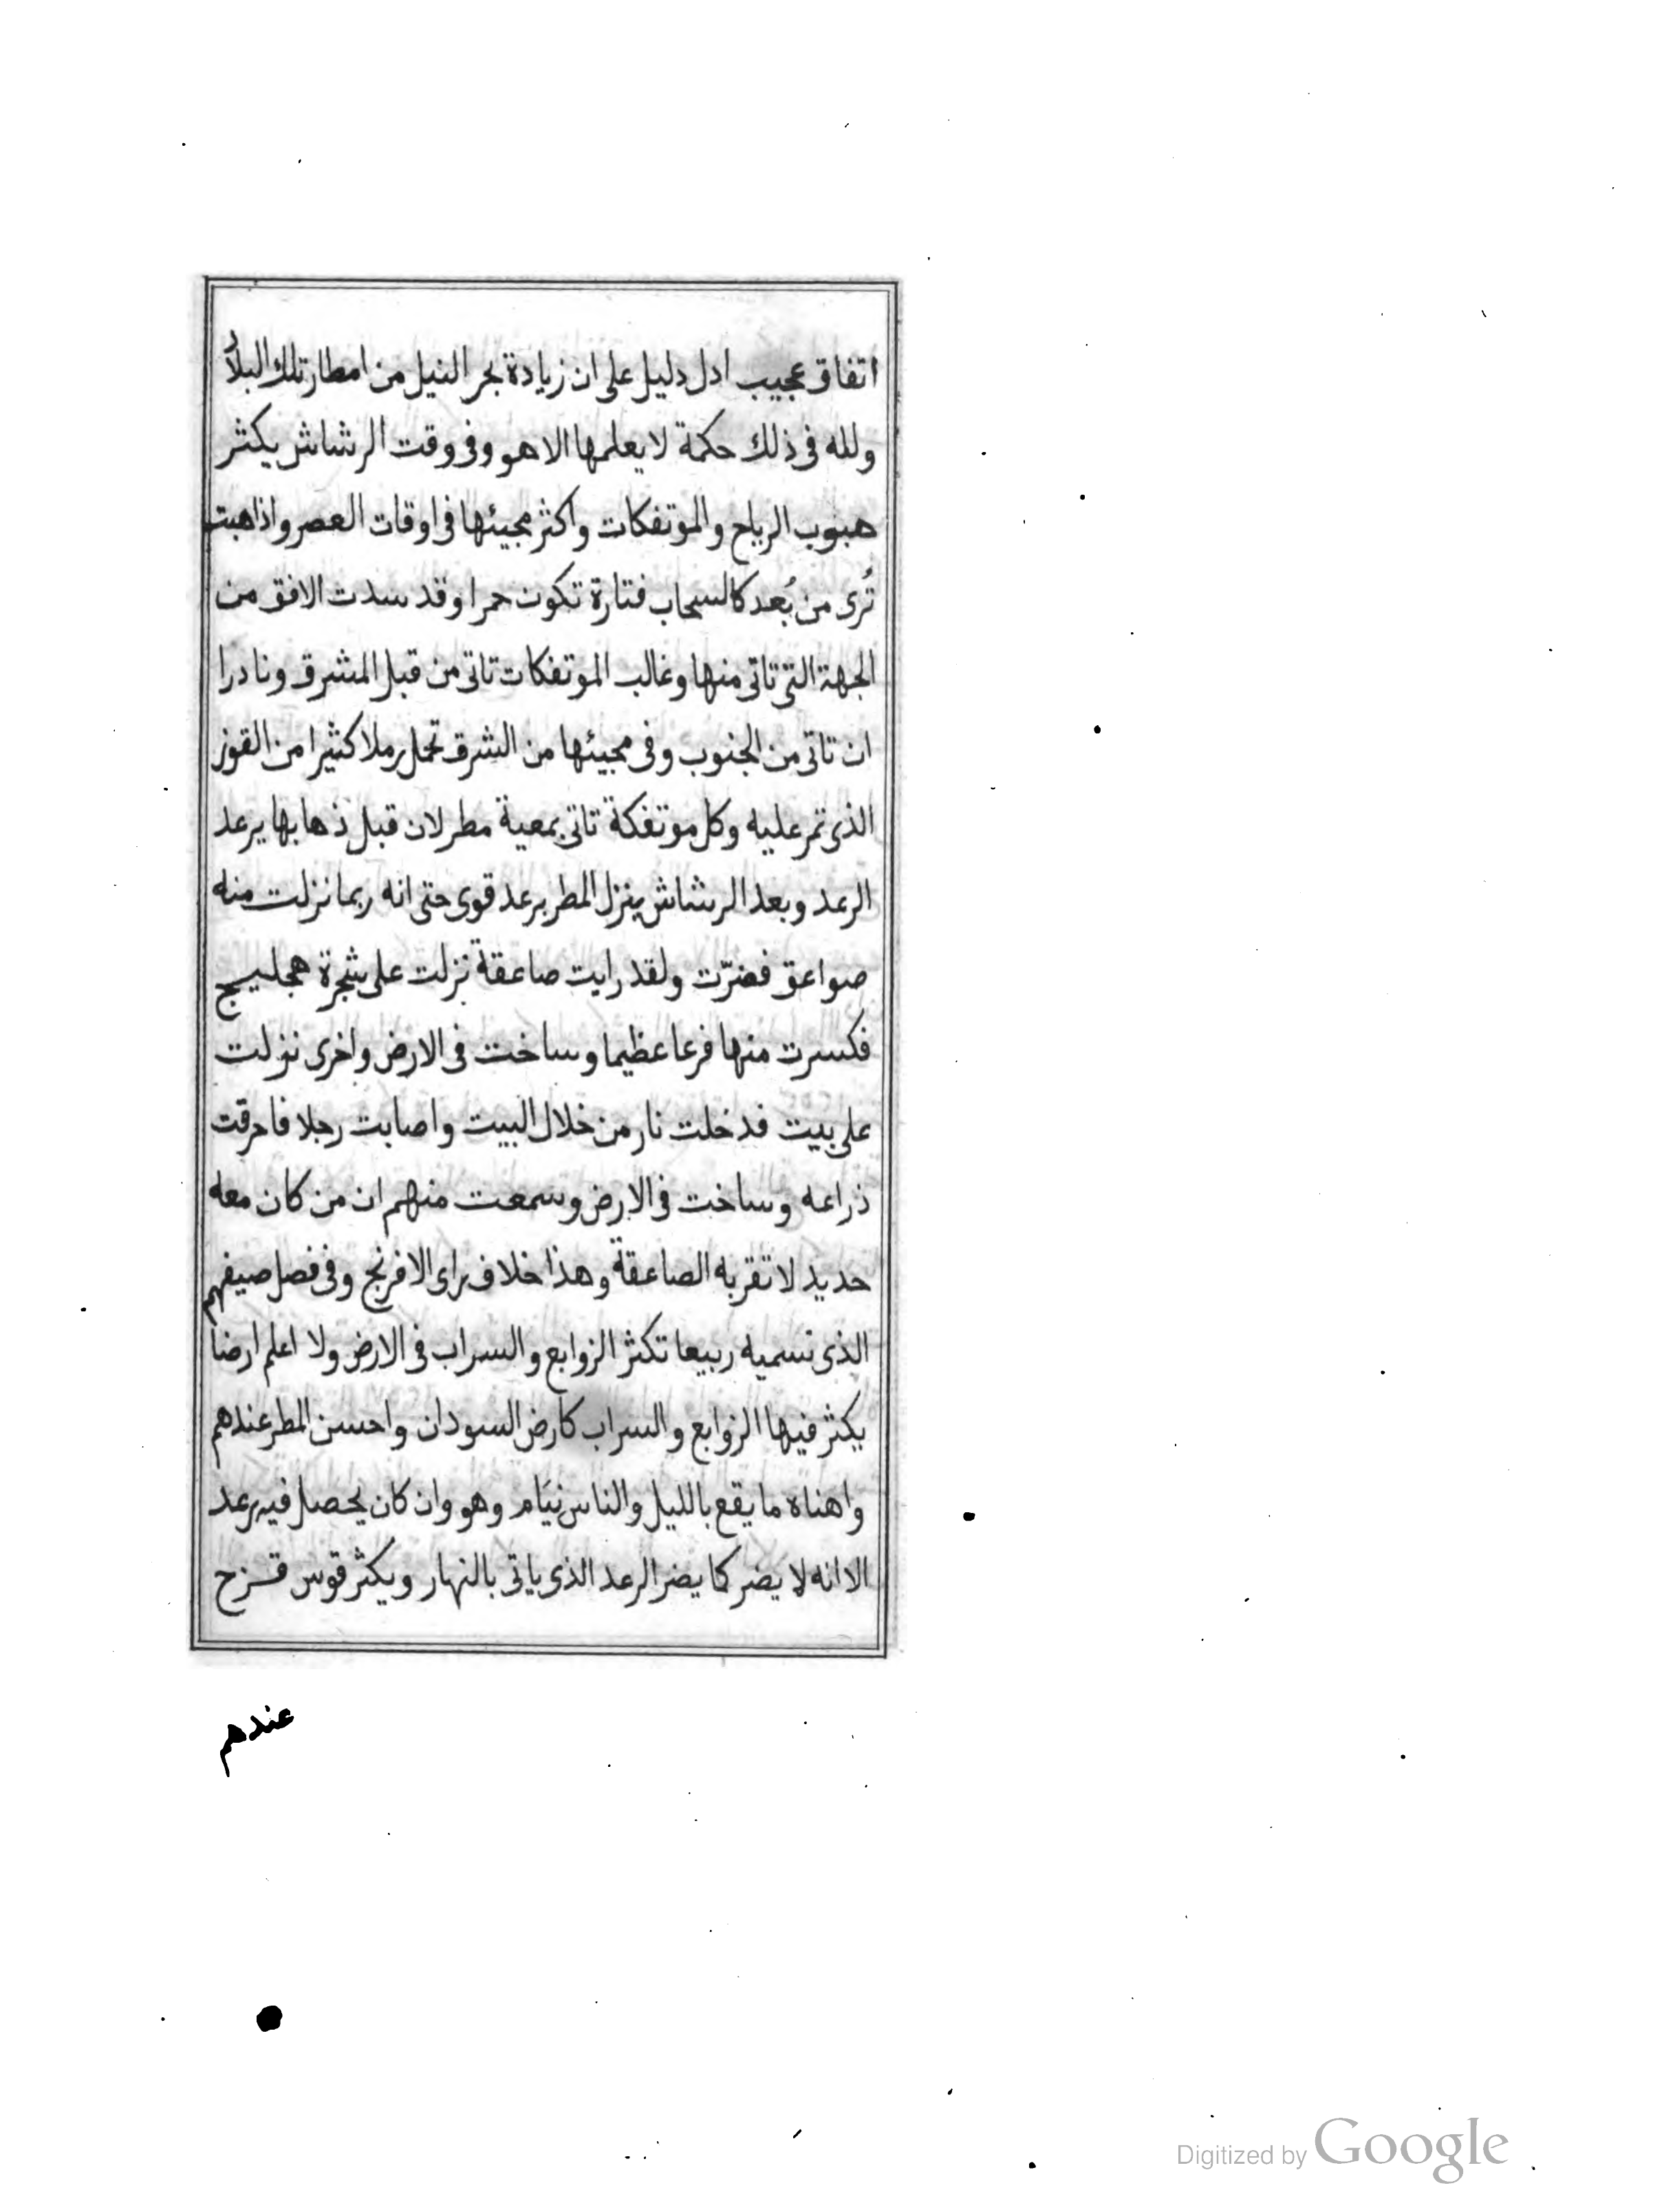 اتفاق عجيب ادل دليل على ان زيادة بحر النيل من امطار تلك البلاد
ولله فى ذلك حكمة لا يعلمها الا هو وفى وقت الرشاش يكثر
هبوب الرياح والموتفكات واكثر مجيئها فى اوقات العصر واذا هبت
تُرى من بُعد كالسحاب فتارة تكون حمرا وقد سدت الافق من
الجهة التى تاتى منها وغالب الموتفكات تاتى من قبل المشرق ونادرا
ان تاتى من الجنوب وفى مجيئها من الشرق تحمل رملا كثيرا من القوز
الذى تمر عليه وكل موتفكة تاتى بمعية مطر لان قبل ذهابها يرعد
الرعد وبعد الرشاش ينزل المطر برعد قوى حتى انه ربما نزلت منه
صواعق فضرّت ولقد رايت صاعقة نزلت على شجرة هجليج
فكسرت منها فرعا عظيما وساخت فى الارض واخرى نزلت
على بيت فدخلت نار من خلال البيت واصابت رجلا فاحرقت
ذراعه وساخت فى الارض وسمعت منهم ان من كان معه
حديد لا تقربه الصاعقة وهذا خلاف راى الافرنج وفى فصل صيفهم
الذى نسميه ربيعا تكثر الزوابع والسراب فى الارض ولا اعلم ارضا
يكثر فيها الزوابع والسراب كارض السودان واحسن المطر عندهم
واهناه ما يقع بالليل والناس نيام وهو وان كان يحصل فيه رعد
الا انه لا يضر كما يضر الرعد الذى ياتى بالنهار ويكثر قوس قزح
عندهم
Digitized by Google